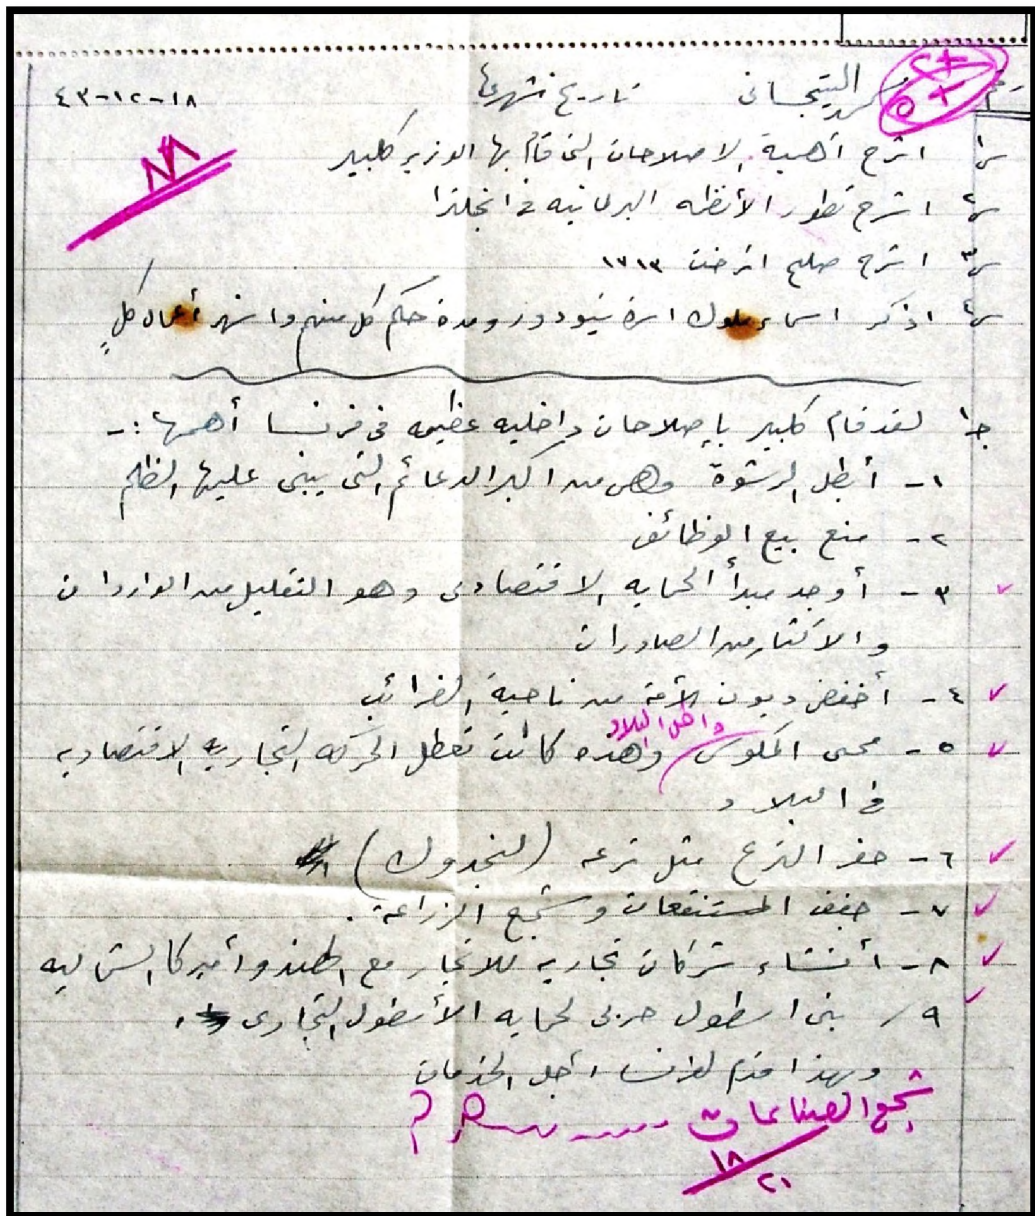 التيجانى تاريخ شهرها ١٨-١٢-٤٣
س١ اشرح أهمية الاصلاحات التى قام بها الوزير كلبير
٨٨
س٢ اشرح تطور الأنظمه البرلمانيه فى انجلترا
س٣ اشرح صلح اترخت ١٧١٣
س٤ اذكر اسماء ملوك اسرة تيودور ومدة حكم كل منهم واشهر أعمال كلٍ
ج١ لقد قام كلبير بإصلاحات داخليه عظيمه فى فرنسا أهمها :-
١- أبطل الرشوة وهى من اكبر الدعائم التى يبنى عليها الظلم
٢- منع بيع الوظائف
٣- أوجد مبدأ الحمايه الاقتصادى وهو التقليل من الواردات
والاكثار من الصادرات
٤- أخفض ديون الأمة من ناحية الضرائب
داخل البلاد
٥- محى المكوس وهذه كانت تعطل الحركه التجاريه الاقتصاديه
فى البلاد
٦- حفر الترع مثل ترعه (لنجدوك)
٧- جفف المستنقعات وشجع الزراعة.
٨- أنشاء شركات تجاريه للاتجار مع الهند وأمريكا الشماليه
٩/ بنى اسطول حربى لحمايه الأسطول التجارى
وبهذا قدم لفرنسا أجل الخدمات
شجع الصناعات
١٨
٢٠